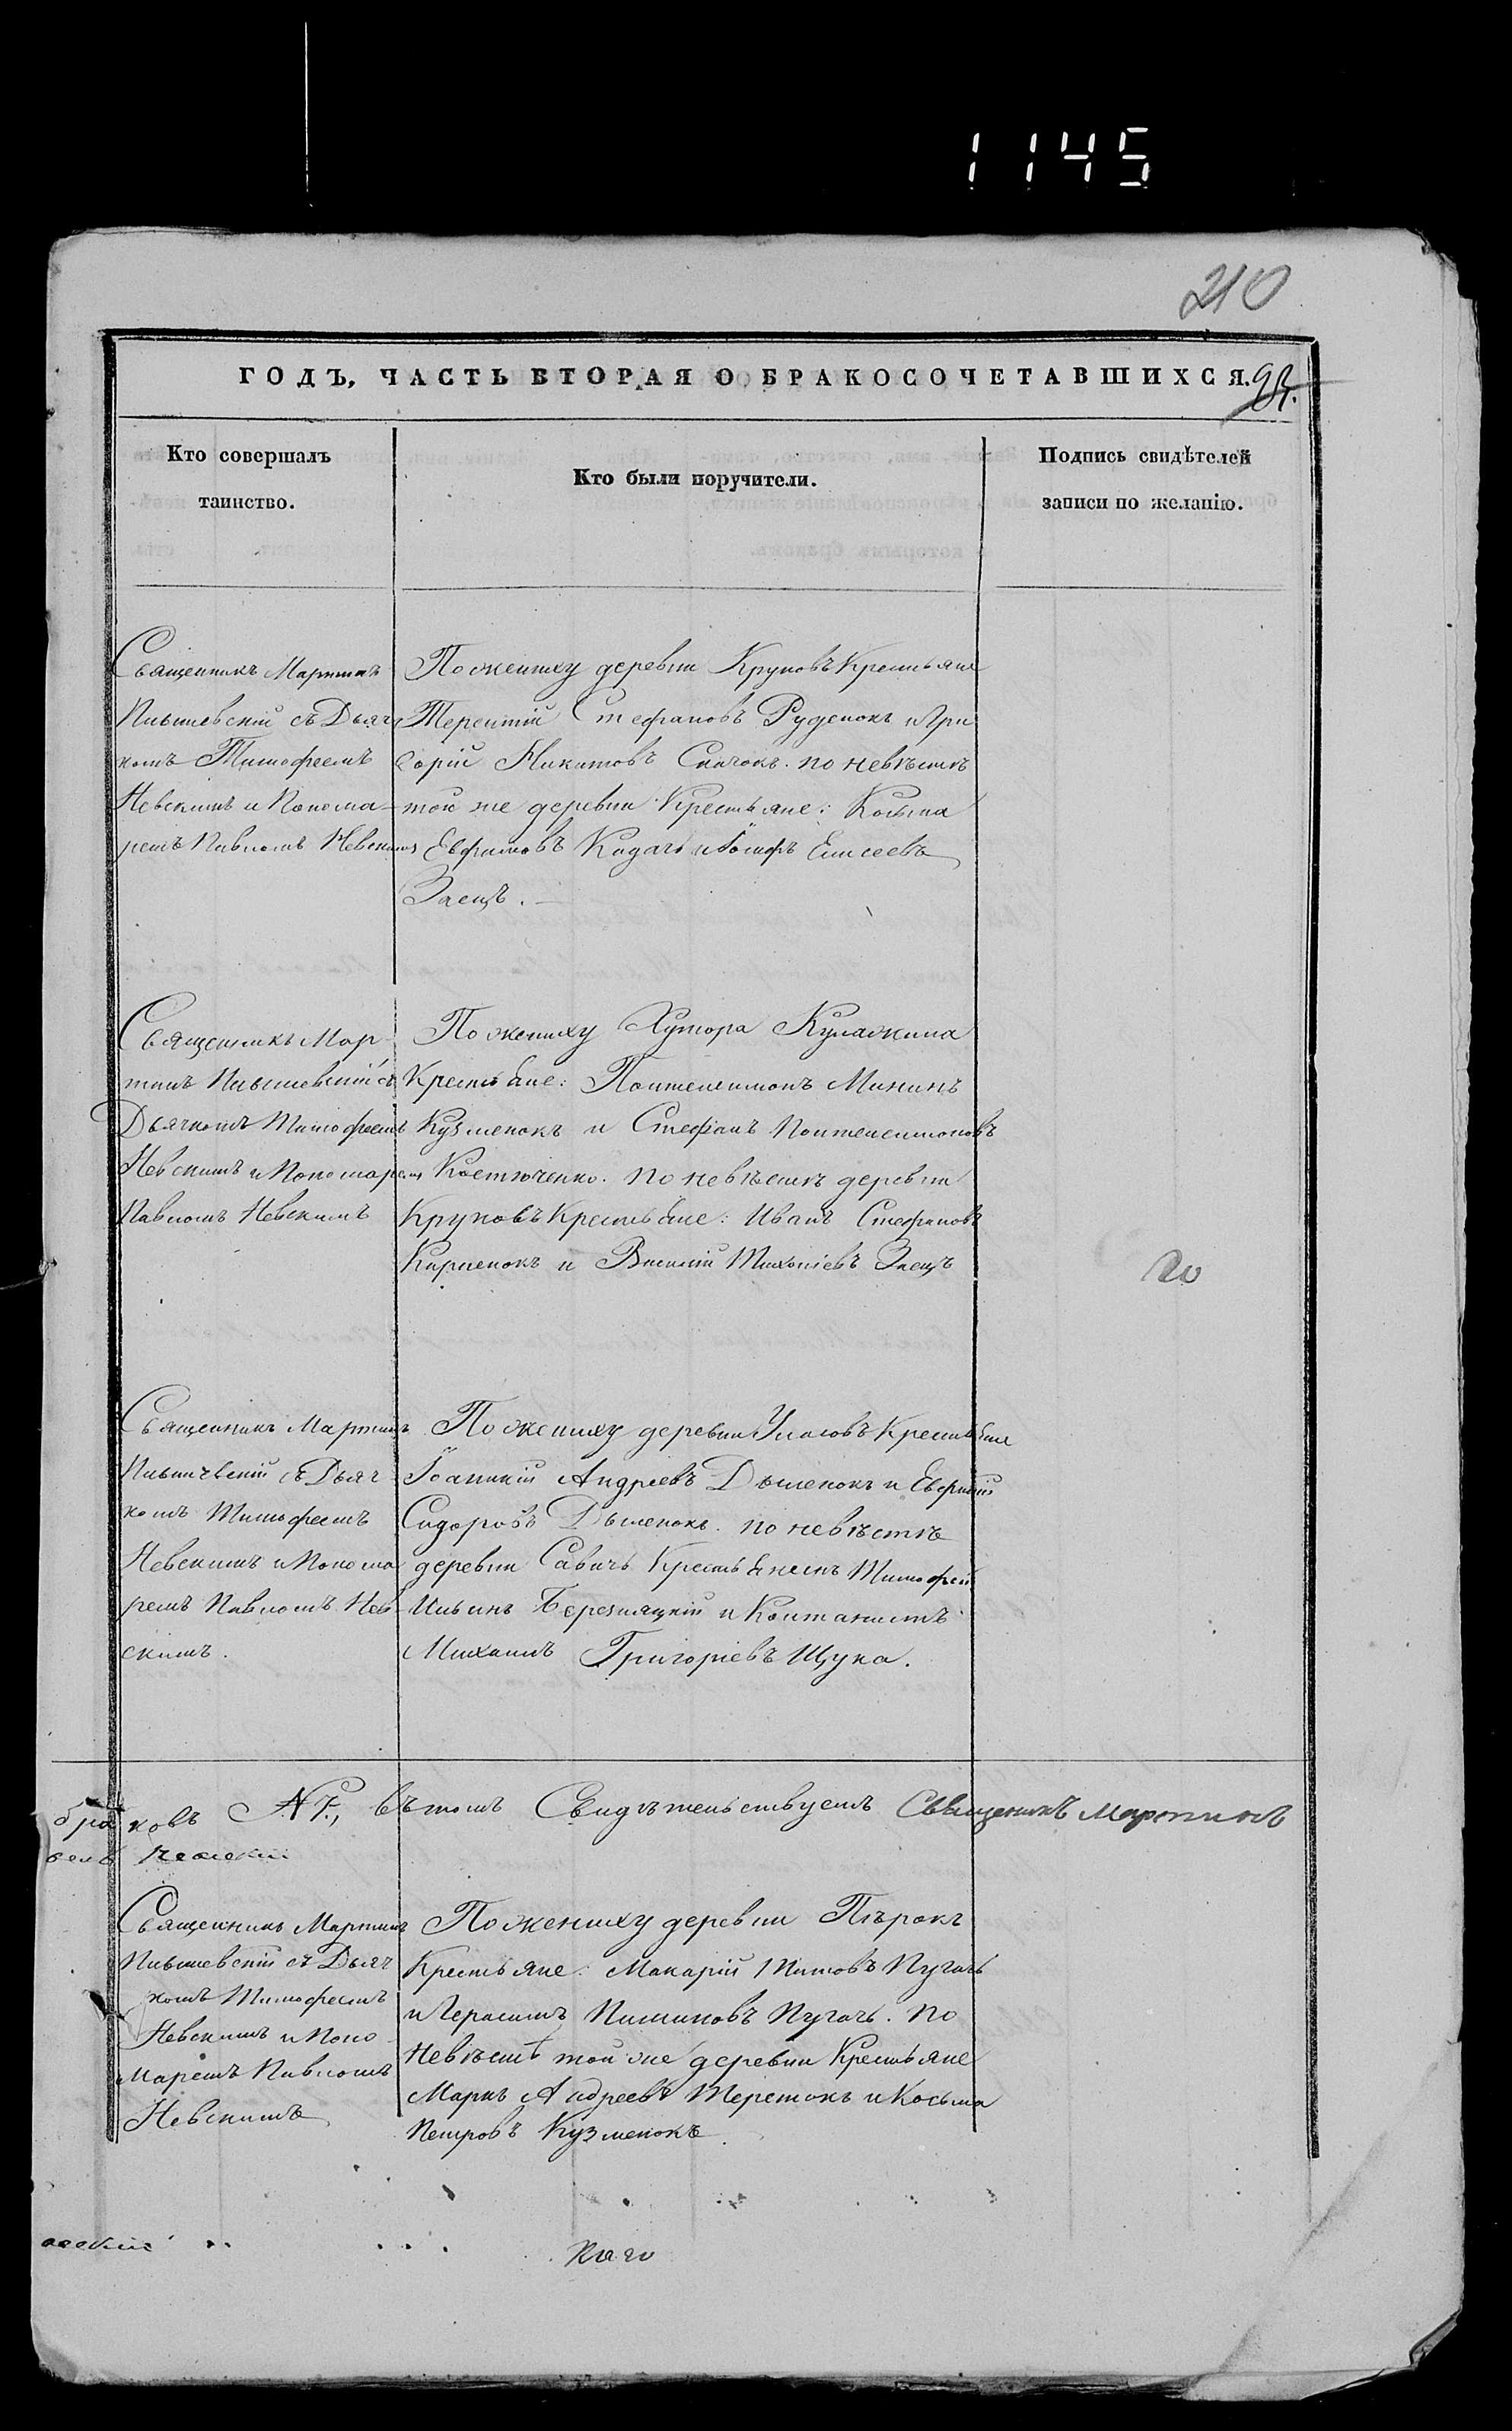 1145
210
ГОДЪ, ЧАСТЬ ВТОРАЯ О БРАКОСОЧЕТАВШИХСЯ.
Кто совершалъ
таинство.
Кто были поручители.
Подпись свидѣтелей
записи по желанію.
Священникъ Мартинъ
съ Дьяч
комъ Тимофеемъ
Невскимъ и Понома-
ремъ Павломъ Невскимъ
По жениху деревни Круковъ Крестьяне
Терентій Стефановъ Руденокъ и Гри
горій Никитовъ Скачокъ. по невѣстѣ
той же деревни Крестьяне: Косьма
Евфимовъ Кадачъ и Іосифъ Елисеевъ
Заецъ.
Священникъ Мар-
тинъ съ
Дьячкомъ Тимофеемъ
Невскимъ и Пономаремъ
Павломъ Невскимъ
По жениху Хутора Кулажина
Крестьяне: Пантелеимонъ Мининъ
Кузменокъ и Стефанъ Пантелеимоновъ
Костюченко. по невѣстѣ деревни
Круковъ Крестьяне: Иванъ Стефановъ
Карпенокъ и Василій Заецъ
Священникъ Мартинъ
съ Дьяч
комъ Тимофеемъ
Невскимъ и Понома
ремъ Павломъ Нев-
скимъ.
По жениху деревни Крестьяне
Іоанникій Андреевъ Дыленокъ и Евфимій
Сидоровъ Дыленокъ. по невѣстѣ
деревни Савичъ Крестьянинъ Тимофей
Ильинъ Березняцкій и
Михаилъ Григоріевъ Щука.
браковъ № 7, въ томъ Свидѣтельствуетъ Священникъ Мартинъ
Священникъ Мартинъ
съ Дьяч
комъ Тимофеемъ
Невскимъ и Поно
маремъ Павломъ
Невскимъ
По жениху деревни Пѣрокъ
Крестьяне: Макарій Титовъ Пугачъ
и Герасимъ Пиминовъ Пугачъ. по
невѣстѣ той же деревни Крестьяне
Маркъ Андреевъ Терешокъ и Косьма
Петровъ Кузменокъ